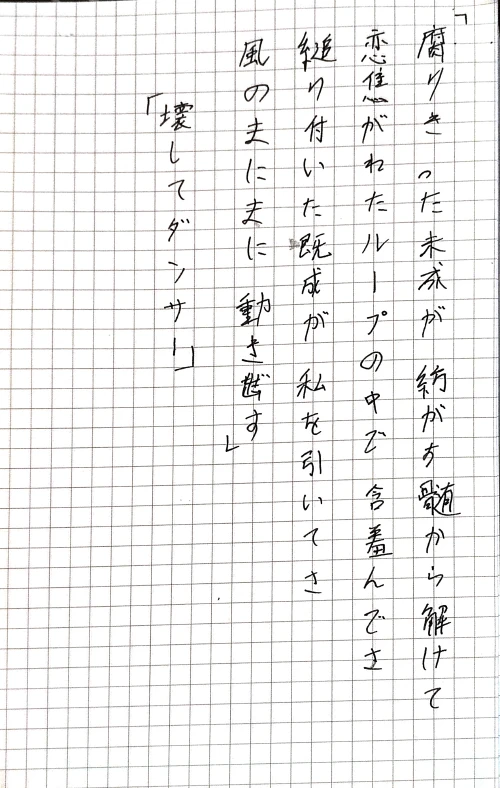 「腐りきった未成が 紡がす髄から解けて
恋焦がれたループの中で 含羞んでさ
縋り付いた既成が 私を引いてさ
風のまにまに 動き す」
「壊してダンサー」